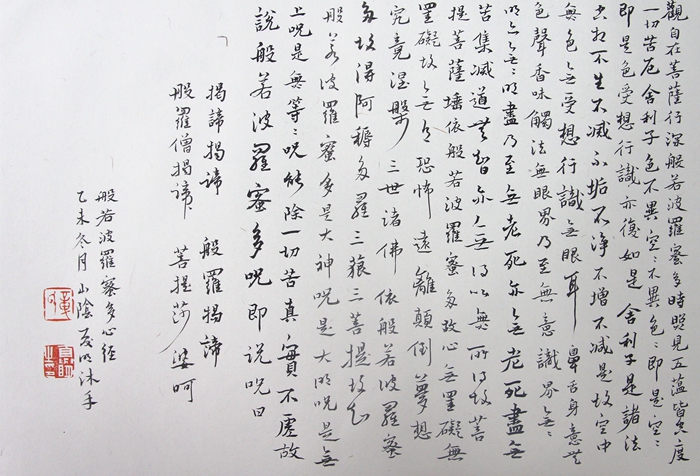 觀自在菩薩行深般若波羅蜜多時照見五蘊皆空度
一切苦厄舍利子色不異空〻不異色〻即是空〻
即是色受想行識亦復如是舍利子是諸法
空相不生不滅不垢不淨不增不減是故空中
無色無受想行識無眼耳鼻舌身意無
色聲香味觸法無眼界乃至無意識界無〻
明亦無〻明盡乃至無老死亦無老死盡無
苦集滅道無智亦無得以無所得故菩
提菩薩埵依般若波羅蜜多故心無罣礙無
罣礙故無有恐怖遠離顛倒夢想
究竟涅槃三世諸佛依般若波羅蜜
多故得阿耨多羅三藐三菩提故知
般若波羅蜜多是大神呪是大明呪是無
上呪是無等〻呪能除一切苦真實不虛故
說般若波羅蜜多呪即說呪曰
揭諦揭諦 般羅揭諦
般羅僧揭諦 菩提莎婆呵
般若波羅蜜多心經
乙未冬月山陰夏明沐手